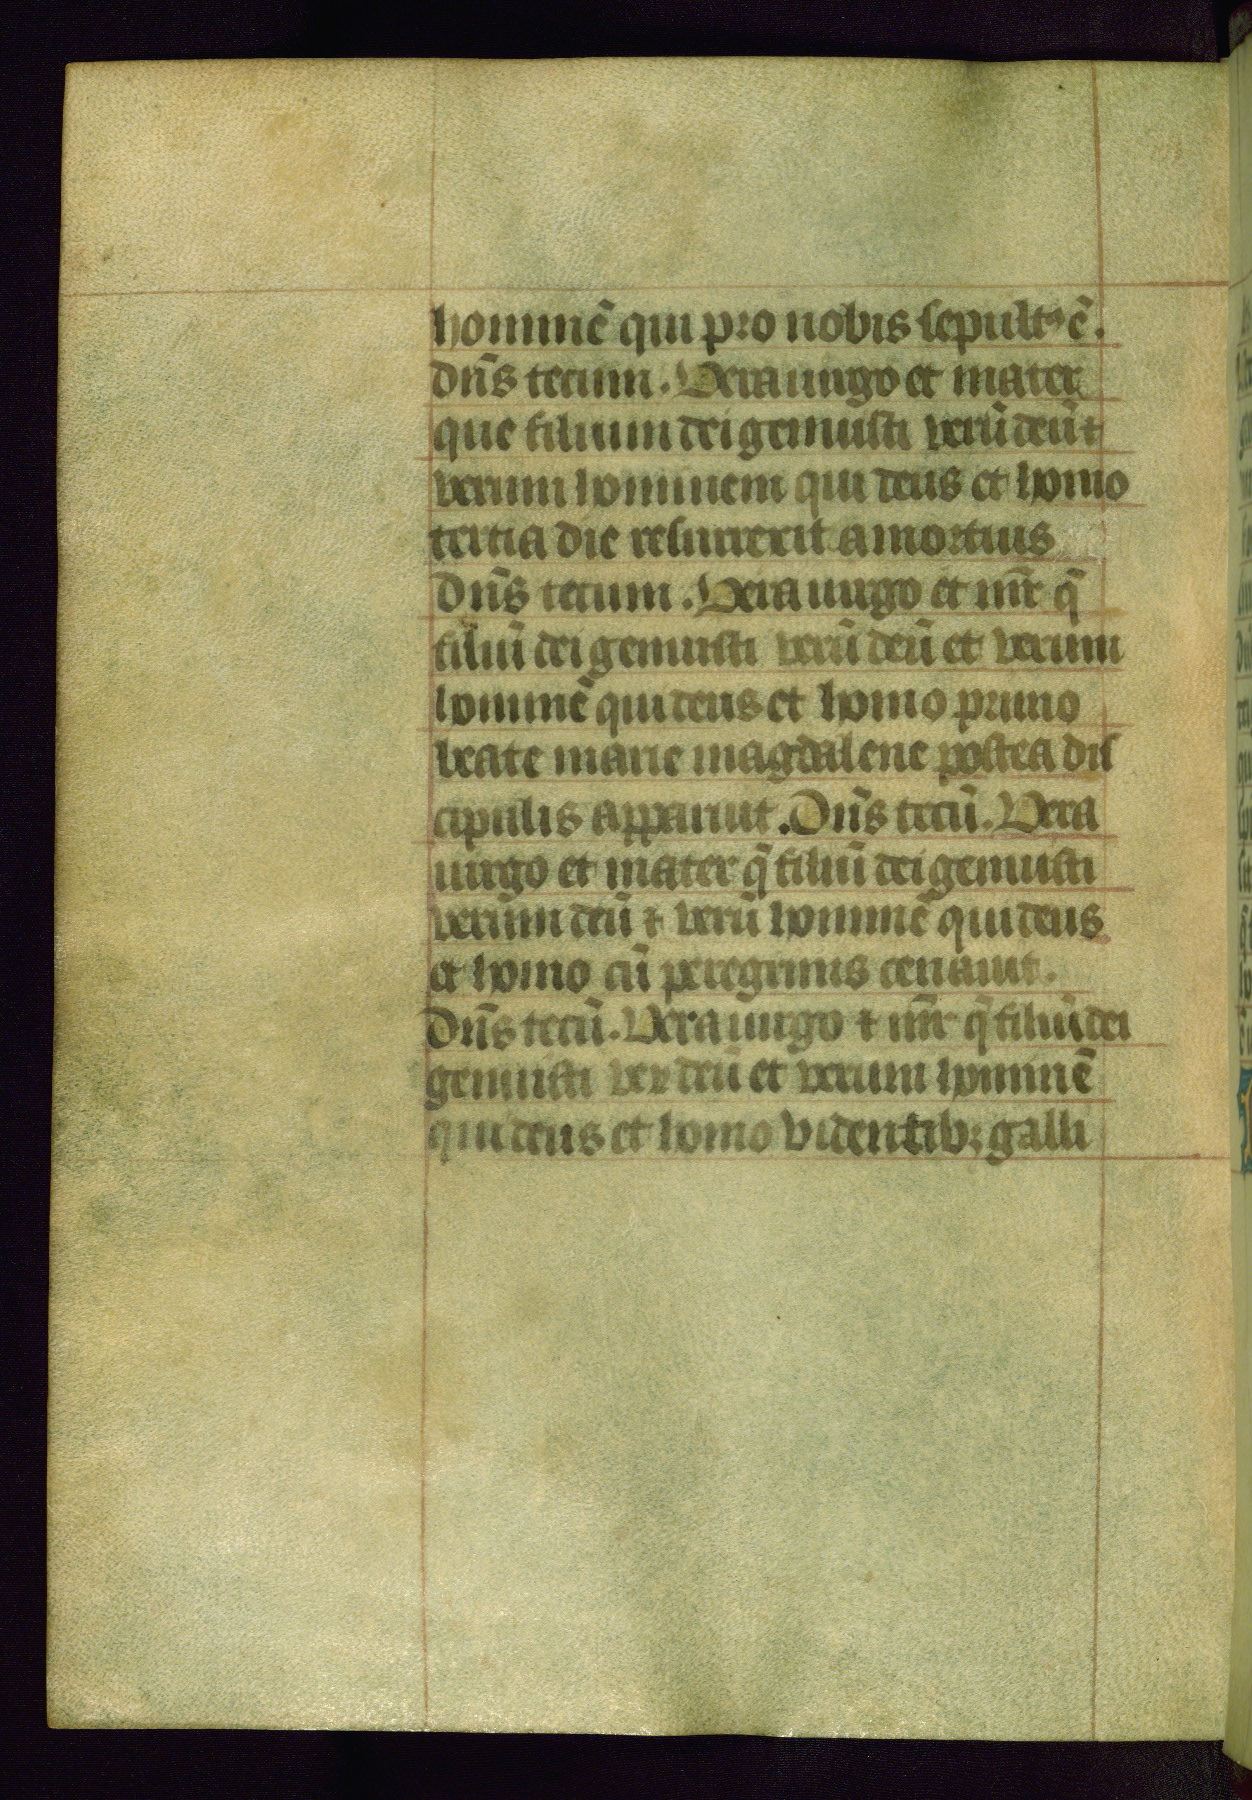 hominē qui pro nobis sepultꝰ ē.
dn̄s tecum. Vera uirgo et mater
que filium dei genuisti verū deū ⁊
verum hominem qui deus et homo
tertia die resurrexit a mortuis
Dn̄s tecum. Vera uirgo et mr̄ q̄
filiū dei genuisti verū deū et verum
hominē qui deus et homo primo
beate marie magdalene postea dis
cipulis apparuit. Dn̄s tecū. Vera
uirgo et mater q̄ filiū dei genuisti
verum deū ⁊ verū hominē qui deus
et homo cū peregrinis cenauit.
Dn̄s tecū. Vera uirgo ⁊ mr̄ q̄ filiū dei
genuisti ver deū et verum hominē
qui deus et homo videntib; galli